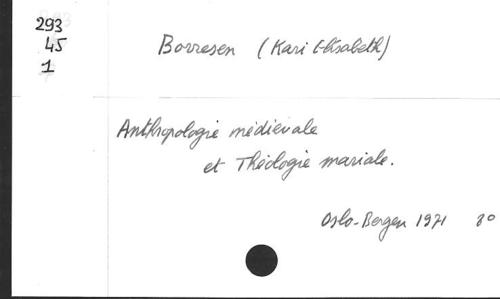 293
45
1
Borresen (Kari Elisabeth)
Anthropologie médiévale
et Théologie mariale.
Oslo-Bergen 1971 8º